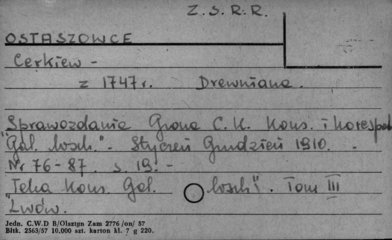 Z.S.R.R.
OSTASZOWCE
Cerkiew -
z 1747 r. Drewniana.
Sprawozdanie Grona C.K. Kons. i Korespond
"Gal. wsch." - Styczeń Grudzień 1910. -
Nr 76-87. s. 19. -
"Teka Kons. Gal. wsch". Tom III
Lwów.
Jedn. C.W.D B/Olsztyn Zam 2776 /on/ 57
Bltk. 2563/57 10.000 szt. karton kl. 7 g 220.